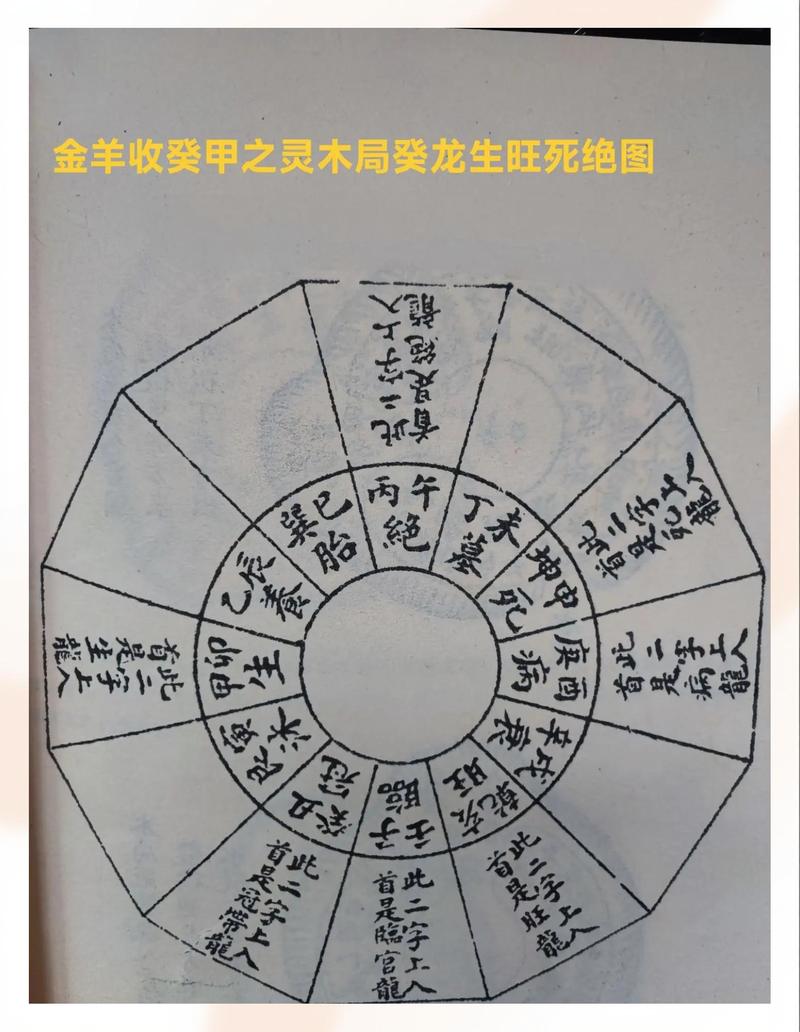 金羊收癸甲之灵木局癸龙生旺死绝图
此二字上入
首是絕龍
丙午
絕
丁未
墓
坤申
死
此二字上入
首是死龍
庚酉
病
此二字上入
首是病龍
辛戌
衰
乾亥
旺
此二字上入
首是旺龍
壬子
臨
此二字上入
首是臨官龍
癸丑
冠
此二字上入
首是冠帶龍
艮寅
沐
甲卯
生
此二字上入
首是生龍
乙辰
養
巽巳
胎